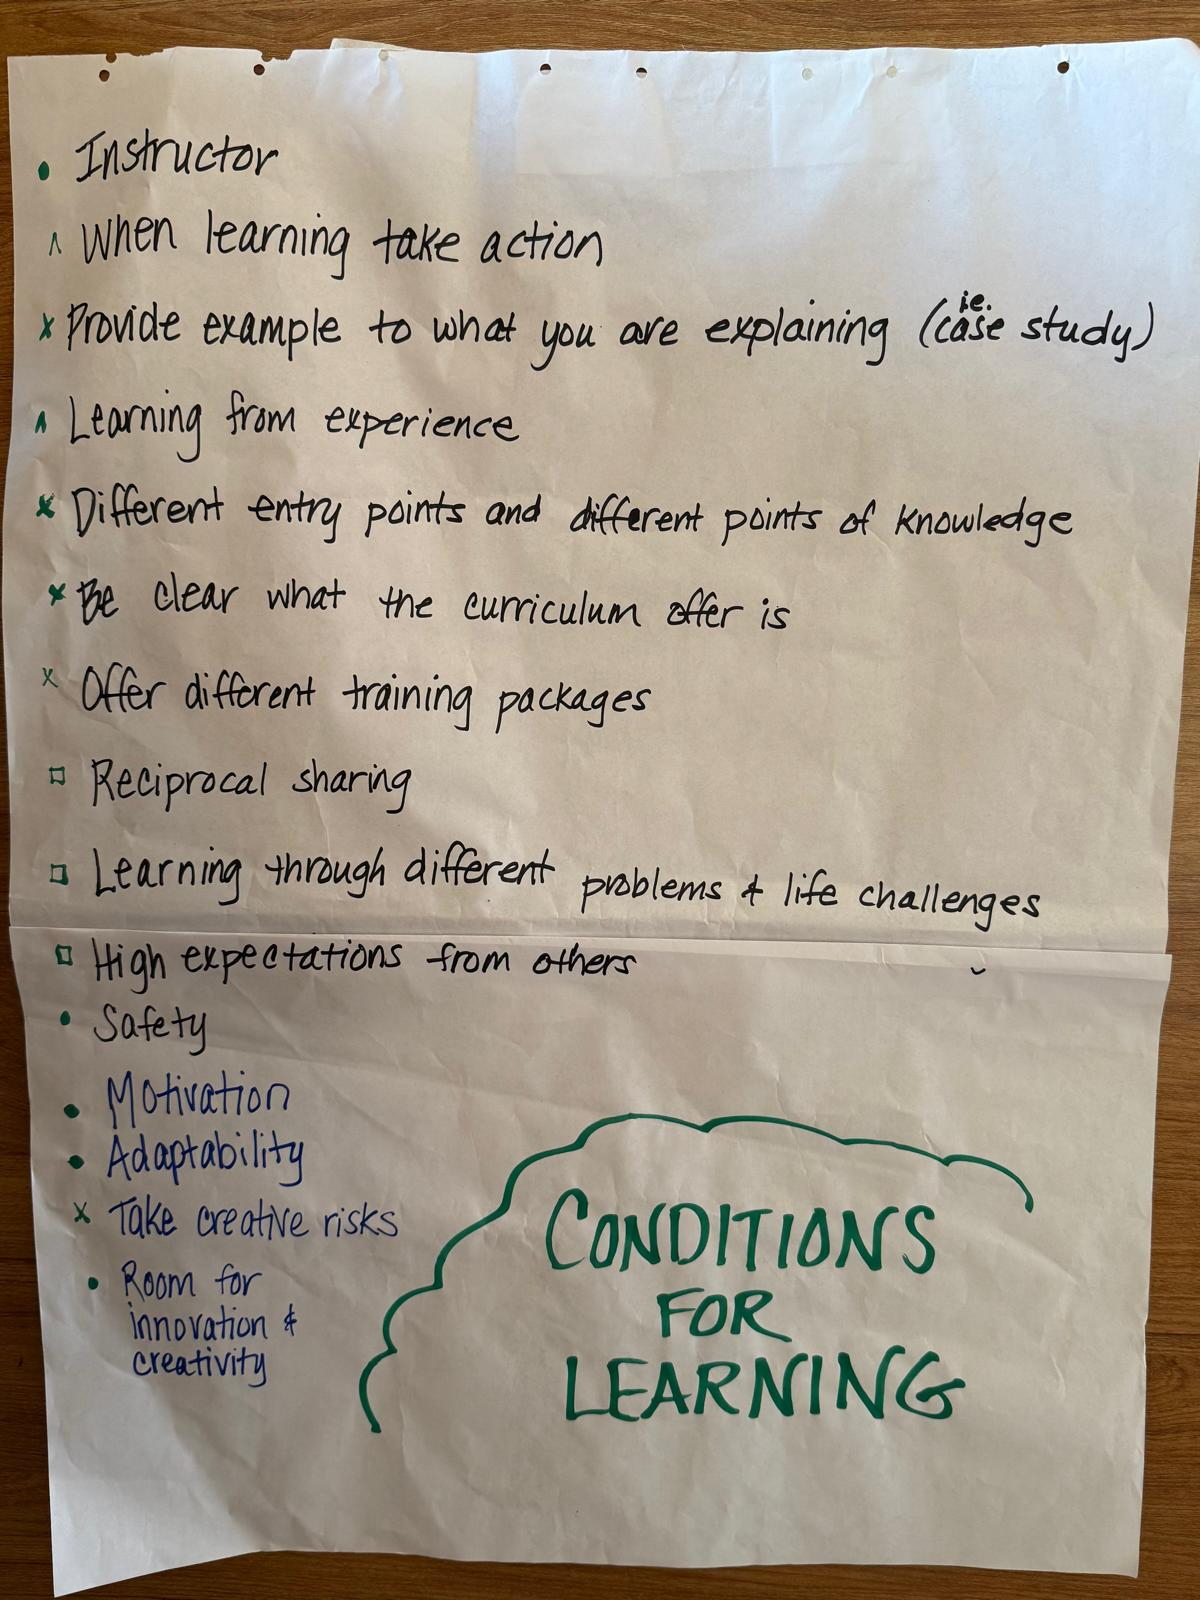 • Instructor
^ When learning take action
x Provide example to what you are explaining (ie. case study)
^ Learning from experience
x Different entry points and different points of knowledge
x Be clear what the curriculum offer is
x Offer different training packages
□ Reciprocal sharing
□ Learning through different problems & life challenges
□ High expectations from others
• Safety
• Motivation
• Adaptability
x Take creative risks
• Room for
innovation &
creativity
CONDITIONS
FOR
LEARNING